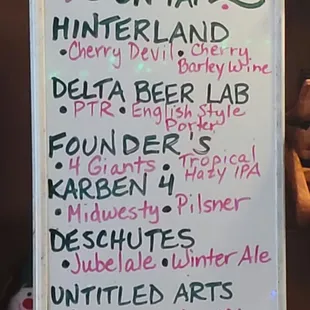 HINTERLAND
•Cherry Devil • Cherry
Barley Wine
DELTA BEER LAB
•PTR •English Style
Porter
FOUNDER'S
•4 Giants • Tropical
Hazy IPA
KARBEN 4
•Midwesty •Pilsner
DESCHUTES
•Jubelale •Winter Ale
UNTITLED ARTS